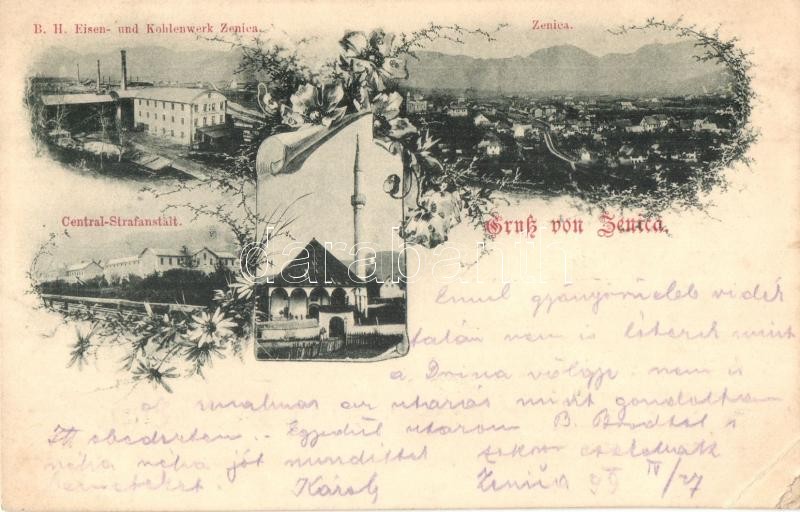 B. H. Eisen- und Kohlenwerk Zenica.
Zenica.
Central-Strafanstalt.
Gruß von Zenica.
darabanth.com
Ennél gyönyörüebb vidék
talán nem is létezik mint
a Drina völgye nem is
unalmas az utazás mint gondoltam
Itt ebédeztem. Egyedül utazom B. Brodtól
néha néha jót
Károly Zenica 99 IV/27